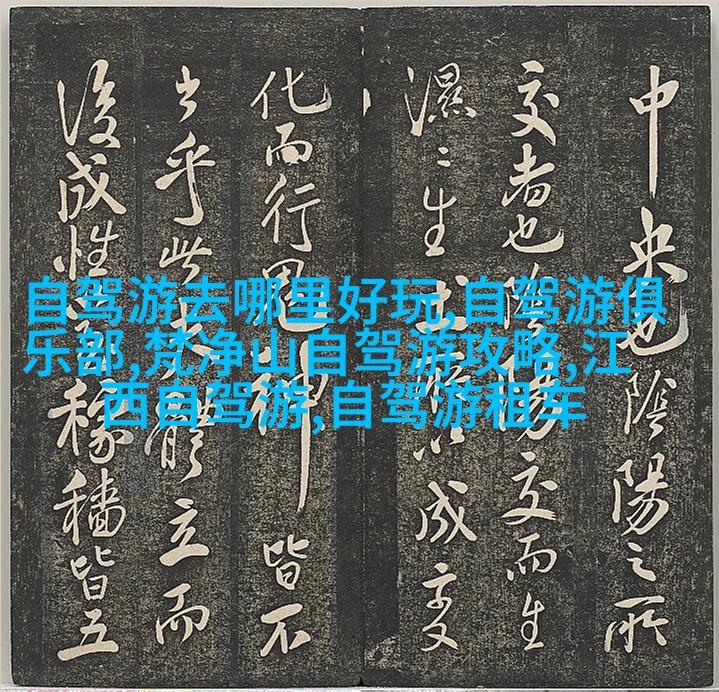 自驾游去哪里好玩,自驾游俱
乐部,梵净山自驾游攻略,江
西自驾游,自驾游租车
中央也陰陽之所
交者也陰陽交而生
濕〻生 成变
化而行鬼神皆不
乎此 體立而
後成性 稼穡皆五